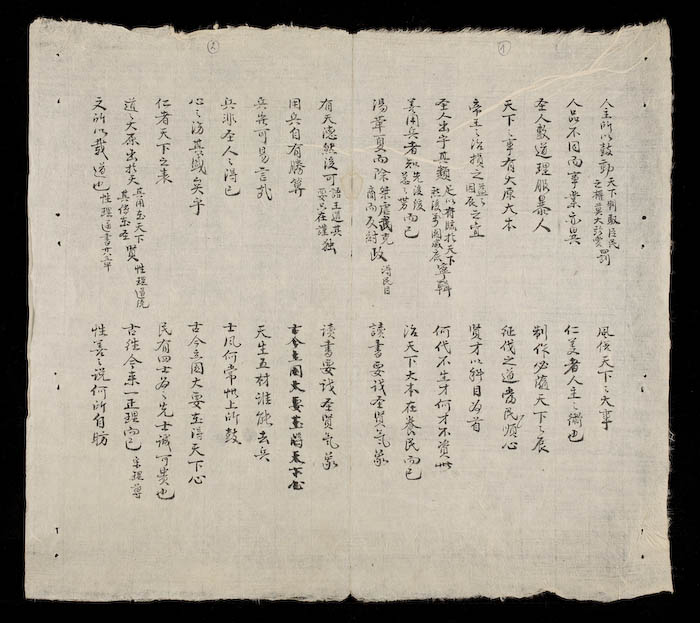 人主所以鼓動天下制馭臣民之權莫大於賞罰
風俗天下之大事
人品不同而事業亦異
仁義者人主之術也
圣人敷道理服暴人
制作必隨天下之辰
天下之事有大原大本
征伐之道當民順心
帝王之治損之益之因辰之宜
賢才以科目為首
圣人出乎其類足以君臨於天下然後万國咸底寧輯
何代不生才何才不資世
善用兵者知先後緩急之势而已
治天下大本在養民而已
湯革夏而除桀虐武克商而反紂政
讀書要識圣賢气象
有天德然後可語王道其要只在謹獨
读書要識圣賢气象
用兵自有勝算
古今立國大要在得天下心
兵豈可易言哉
天生五材誰能去兵
兵非圣人之得已
士風何常惟上所鼓
心之汸其感矣乎
古今立國大要在得天下心
仁者天下之表
民有四士為之先士誠可貴也
道之大原出於天其用在天下其傳在圣賢性理道統
古往今來一正理而已
文所以載道也性理通書廿八章
性善之説何所自昉